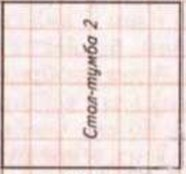 Стол-тумба 2